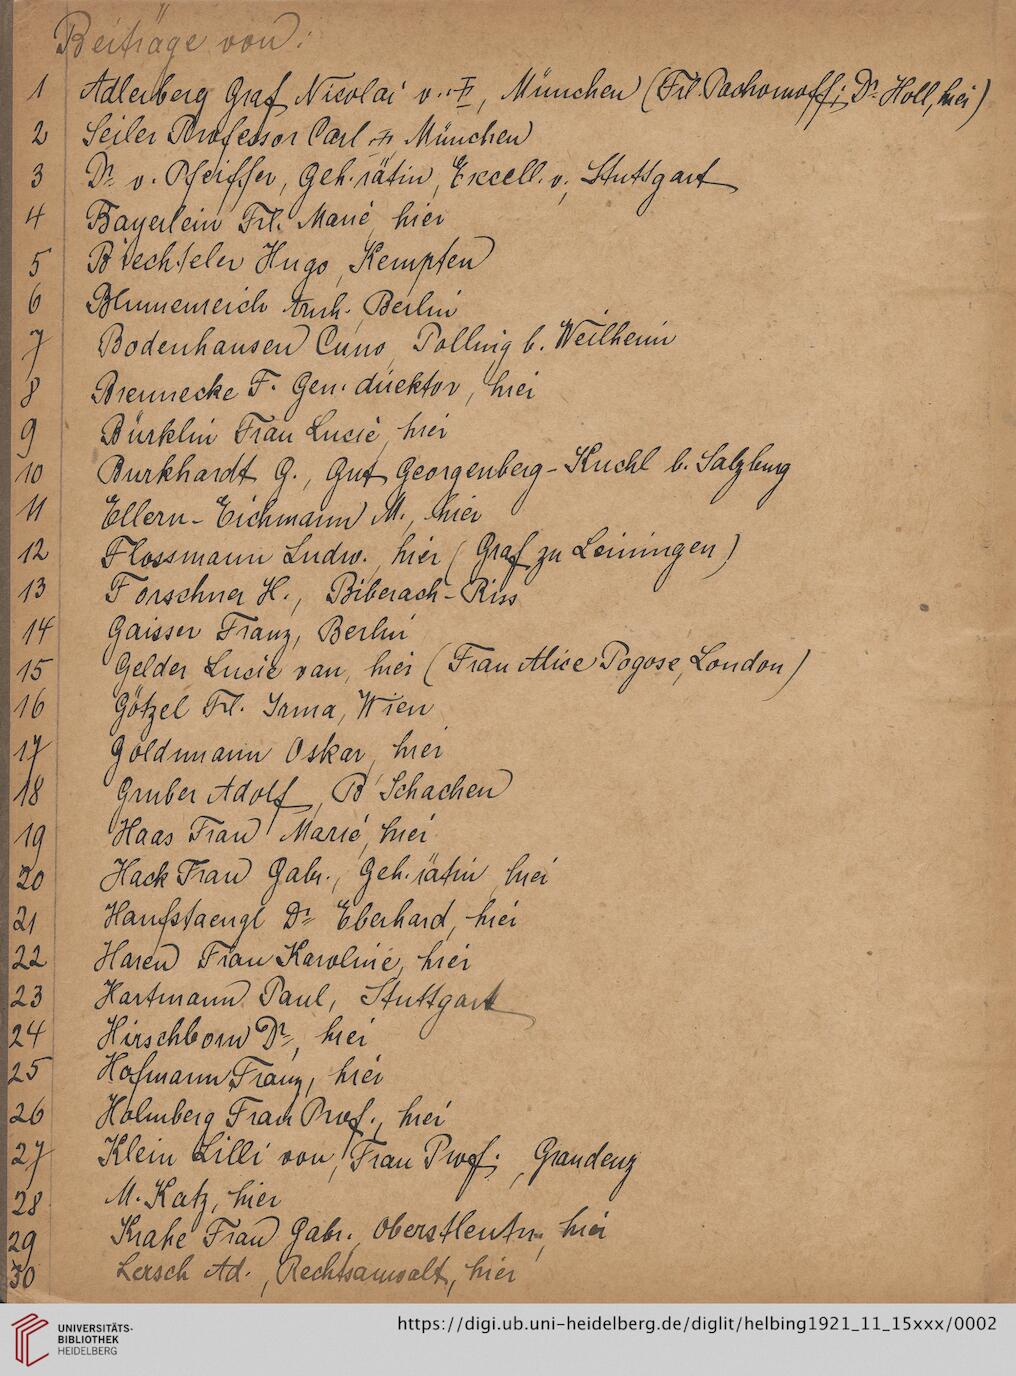 Beiträge von:
1 Adlerberg Graf Nicolai v. , München (Frl. Pachomoff; Dr. Holl, hier)
2 Seiler Professor Carl München
3 Dr. v. Pfeiffer, Geh.rätin, Excell. v., Stuttgart
4 Bayerlein Frl. Marie, hier
5 Biechteler Hugo, Kempten
6 Blumenreich , Berlin
7 Bodenhausen Cuno, Polling b. Weilheim
8 Brennecke F. Gen.direktor, hier
9 Bürklin Frau Lucie, hier
10 Burkhardt G., Gut Georgenberg-Kuchl b. Salzburg
11 Ellern-Eichmann M., hier
12 Flossmann Ludw., hier (Graf zu Leiningen)
13 Forschner H., Biberach-Riss
14 Gaisser Franz, Berlin
15 Gelder Lucie van, hier (Frau Alice Pogose, London)
16 Götzel Frl. Irma, Wien
17 Goldmann Oskar, hier
18 Gruber Adolf, B Schachen
19 Haas Frau Marie, hier
20 Hack Frau Gabr., Geh.rätin, hier
21 Hanfstaengl Dr. Eberhard, hier
22 Haren Frau Karoline, hier
23 Hartmann Paul, Stuttgart
24 Hirschborn Dr., hier
25 Hofmann Franz, hier
26 Holmberg Frau Prof., hier
27 Klein Lilli von, Frau Prof., Graudenz
28 M. Katz, hier
29 Krahe Frau Gabr., Oberstleutn., hier
30 Lersch Ad., Rechtsanwalt, hier
UNIVERSITÄTS-
BIBLIOTHEK
HEIDELBERG
https://digi.ub.uni-heidelberg.de/diglit/helbing1921_11_15xxx/0002